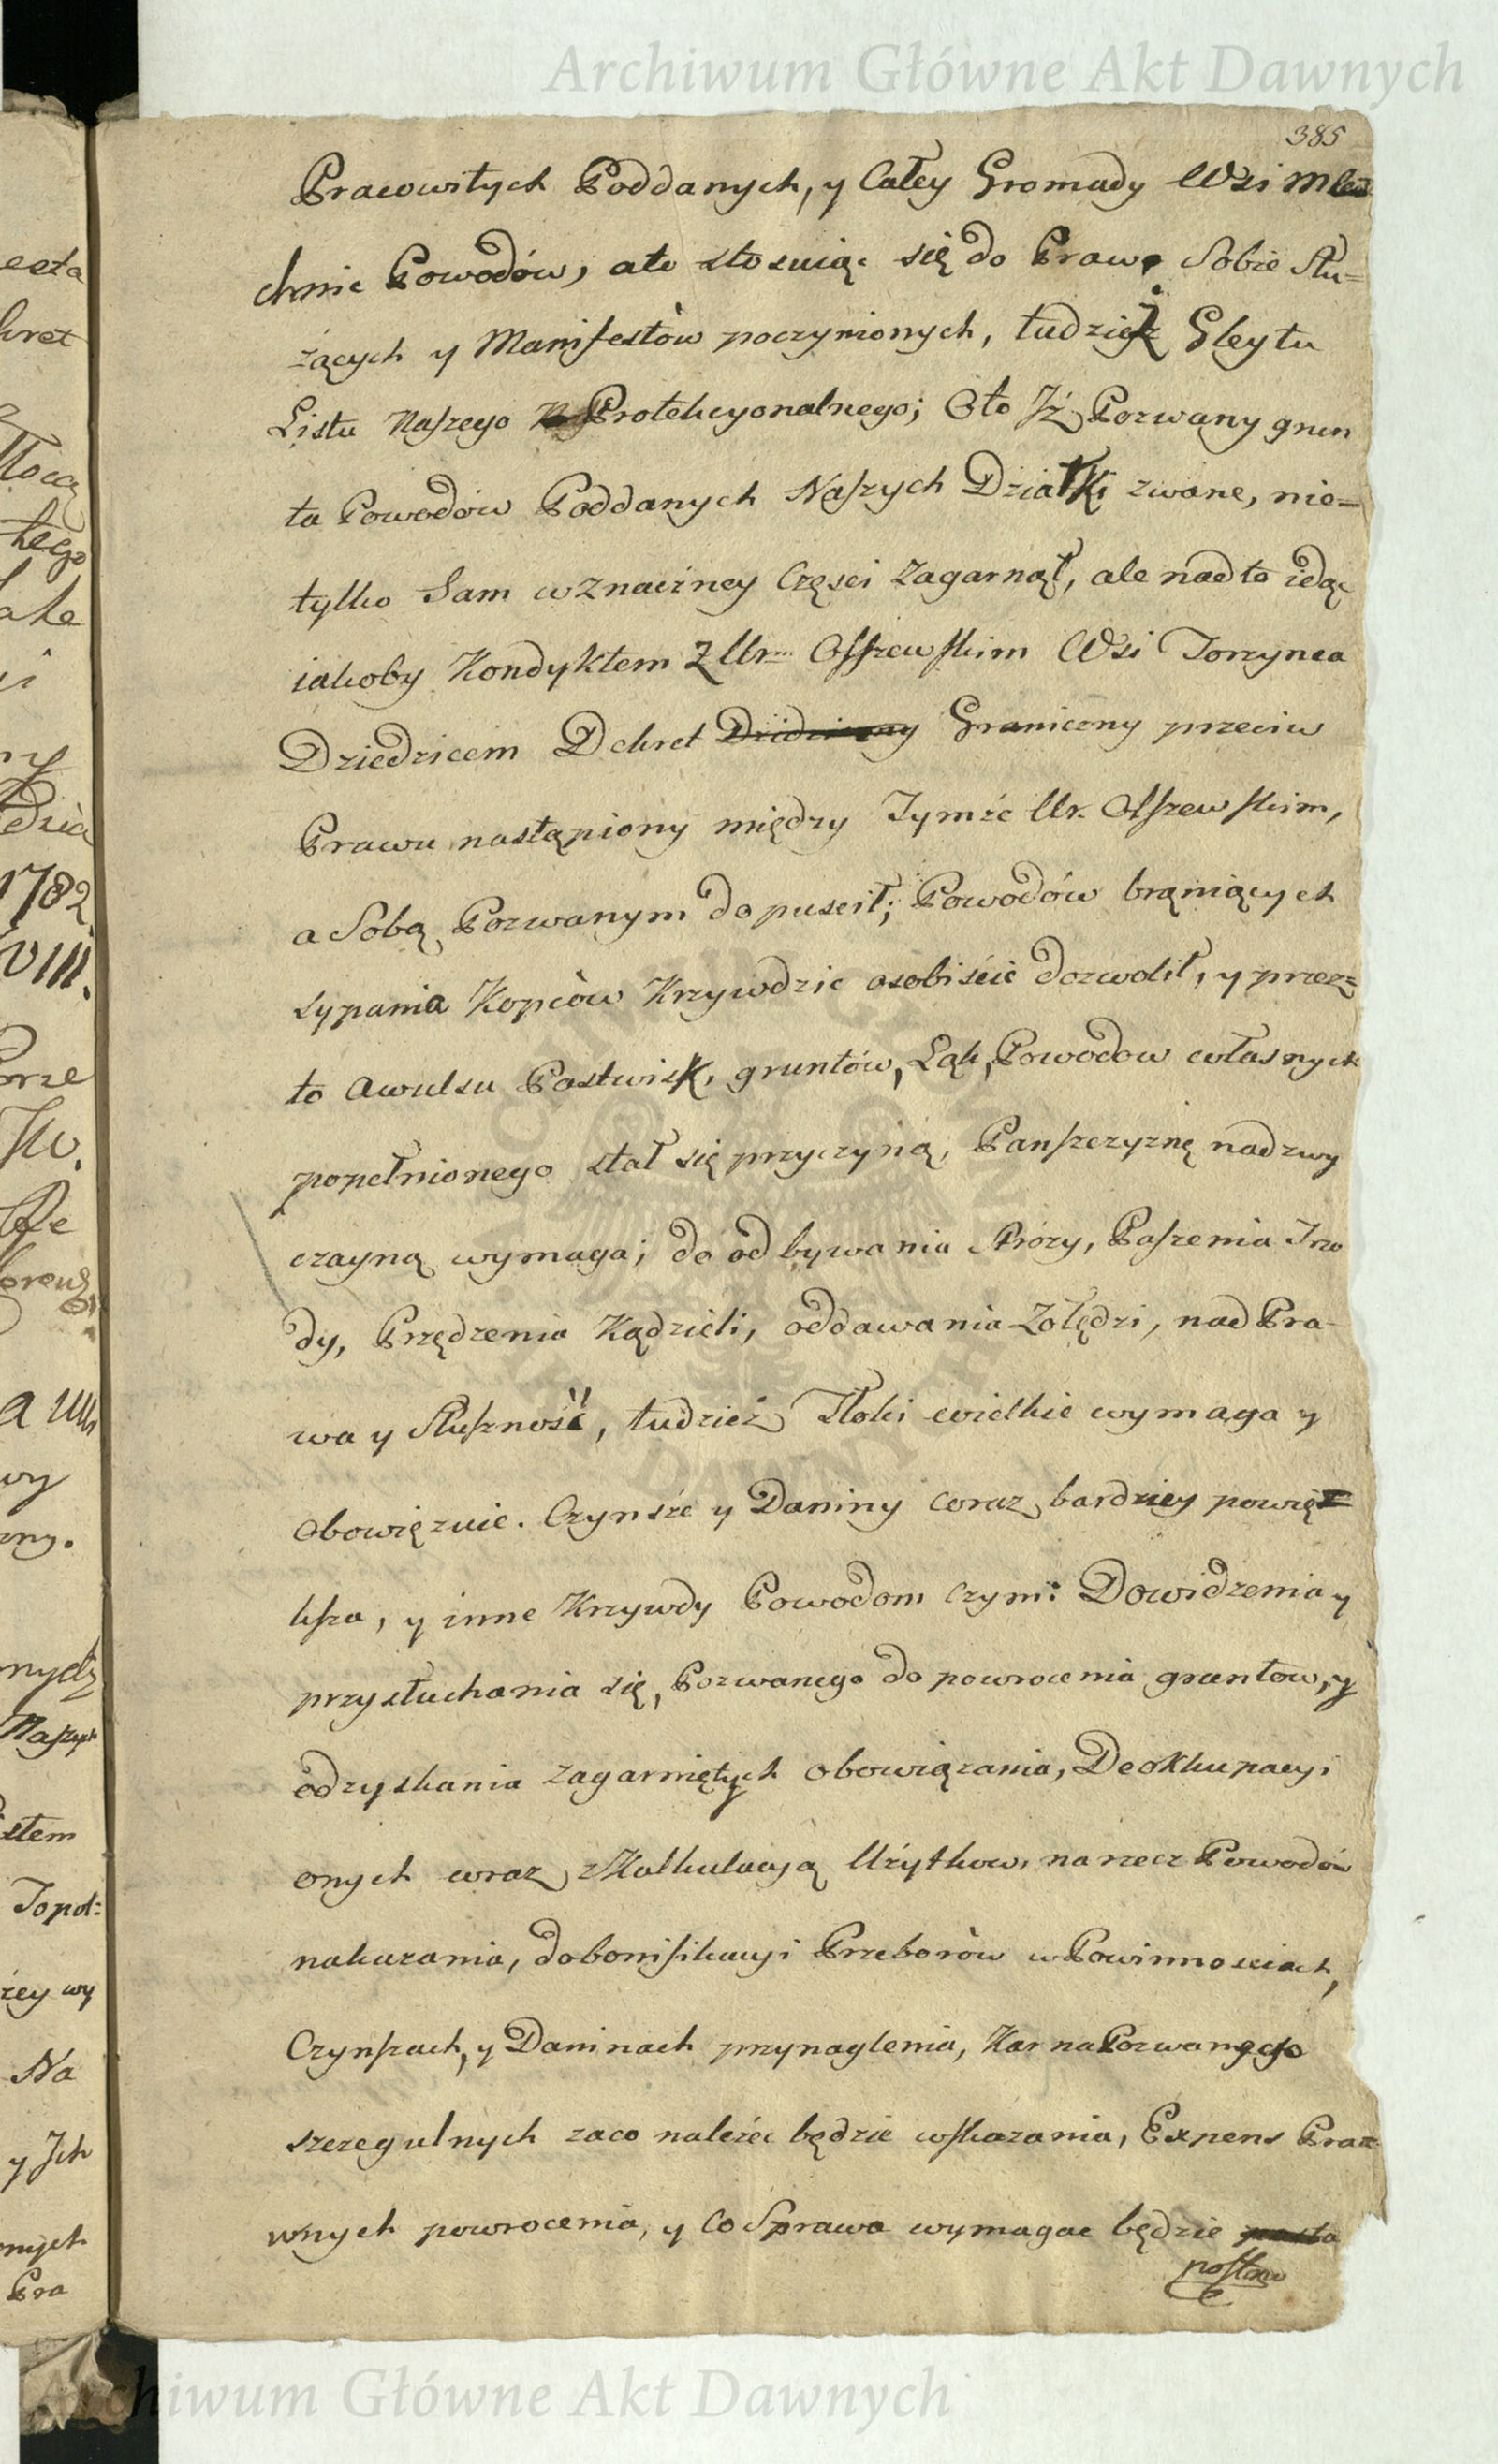 Archiwum Główne Akt Dawnych
385
Pracowitych Poddanych, y Całey Gromady Wsi Mle
chnie Powodów, a to stosuiąc się do Praw Sobie Słu=
żących y Manifestów poczynionych, tudzież Gleytu
Listu Naszego Protekcyonalnego; Oto Jż Pozwany grun
ta Powodów Poddanych Naszych Działki zwane, nie=
tylko Sam w znaczney Częsci zagarnął, ale nadto idąc
iakoby Kondyktem z Ur. Olszewskim Wsi Torzynca
Dziedzicem Dekret Graniczny przeciw
Prawu nastąpiony między Tymże Ur. Olszewskim,
a Sobą Pozwanym dopuscił; Powodów braniących
sypania Kopców Krzywdzic osobiście dozwolił, y przez=
to awulsu Pastwisk, gruntów, Łąk, Powodow własnych
popełnionego stał się przyczyną, Panszczyznę nadzwy
czayną wymaga; do odbywania Stróży, Paszenia Trzo
dy, Przędzenia Kądzieli, oddawania Zołędzi, nad Pra-
wa y Słuszność, tudzież Tłoki wielkie wymaga y
obowięzuie. Czynsze y Daniny coraz bardziey powięk=
ksza, y inne Krzywdy Powodom czyni: Dowidzenia y
przysłuchania się, Pozwanego do powrocenia gruntow, y
odzyskania zagarniętych obowiązania, Deokkupacyi
onych wraz z Kalkulacyą Użytkow, na rzecz Powodów
nakazania, do bonifikacyi Przeborów w Powinnosciach,
Czynszach, y Daninach przynaglenia, Kar na Pozwanego
szczegulnych za co należec będzie wskazania, Expens Praw
wnych powrocenia, y Co Sprawa wymagac będzie posta
postan
Archiwum Główne Akt Dawnych